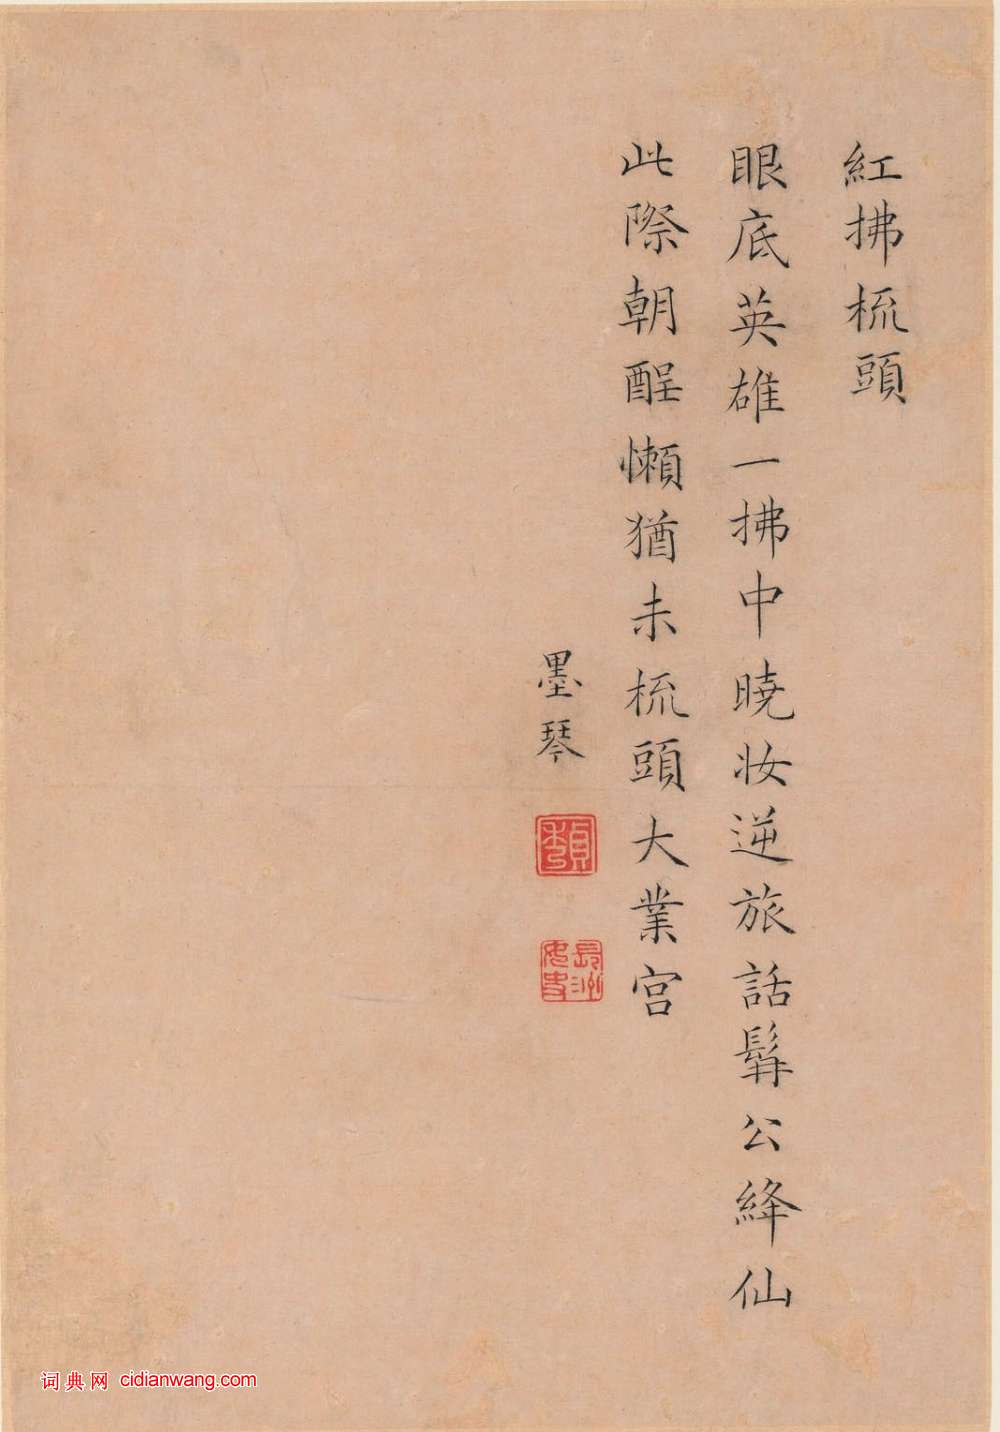 紅拂梳頭
眼底英雄一拂中曉妝逆旅話髯公絳仙
此際朝酲懶猶未梳頭大業宮
墨琴
長洲女史
词典网 cidianwang.com